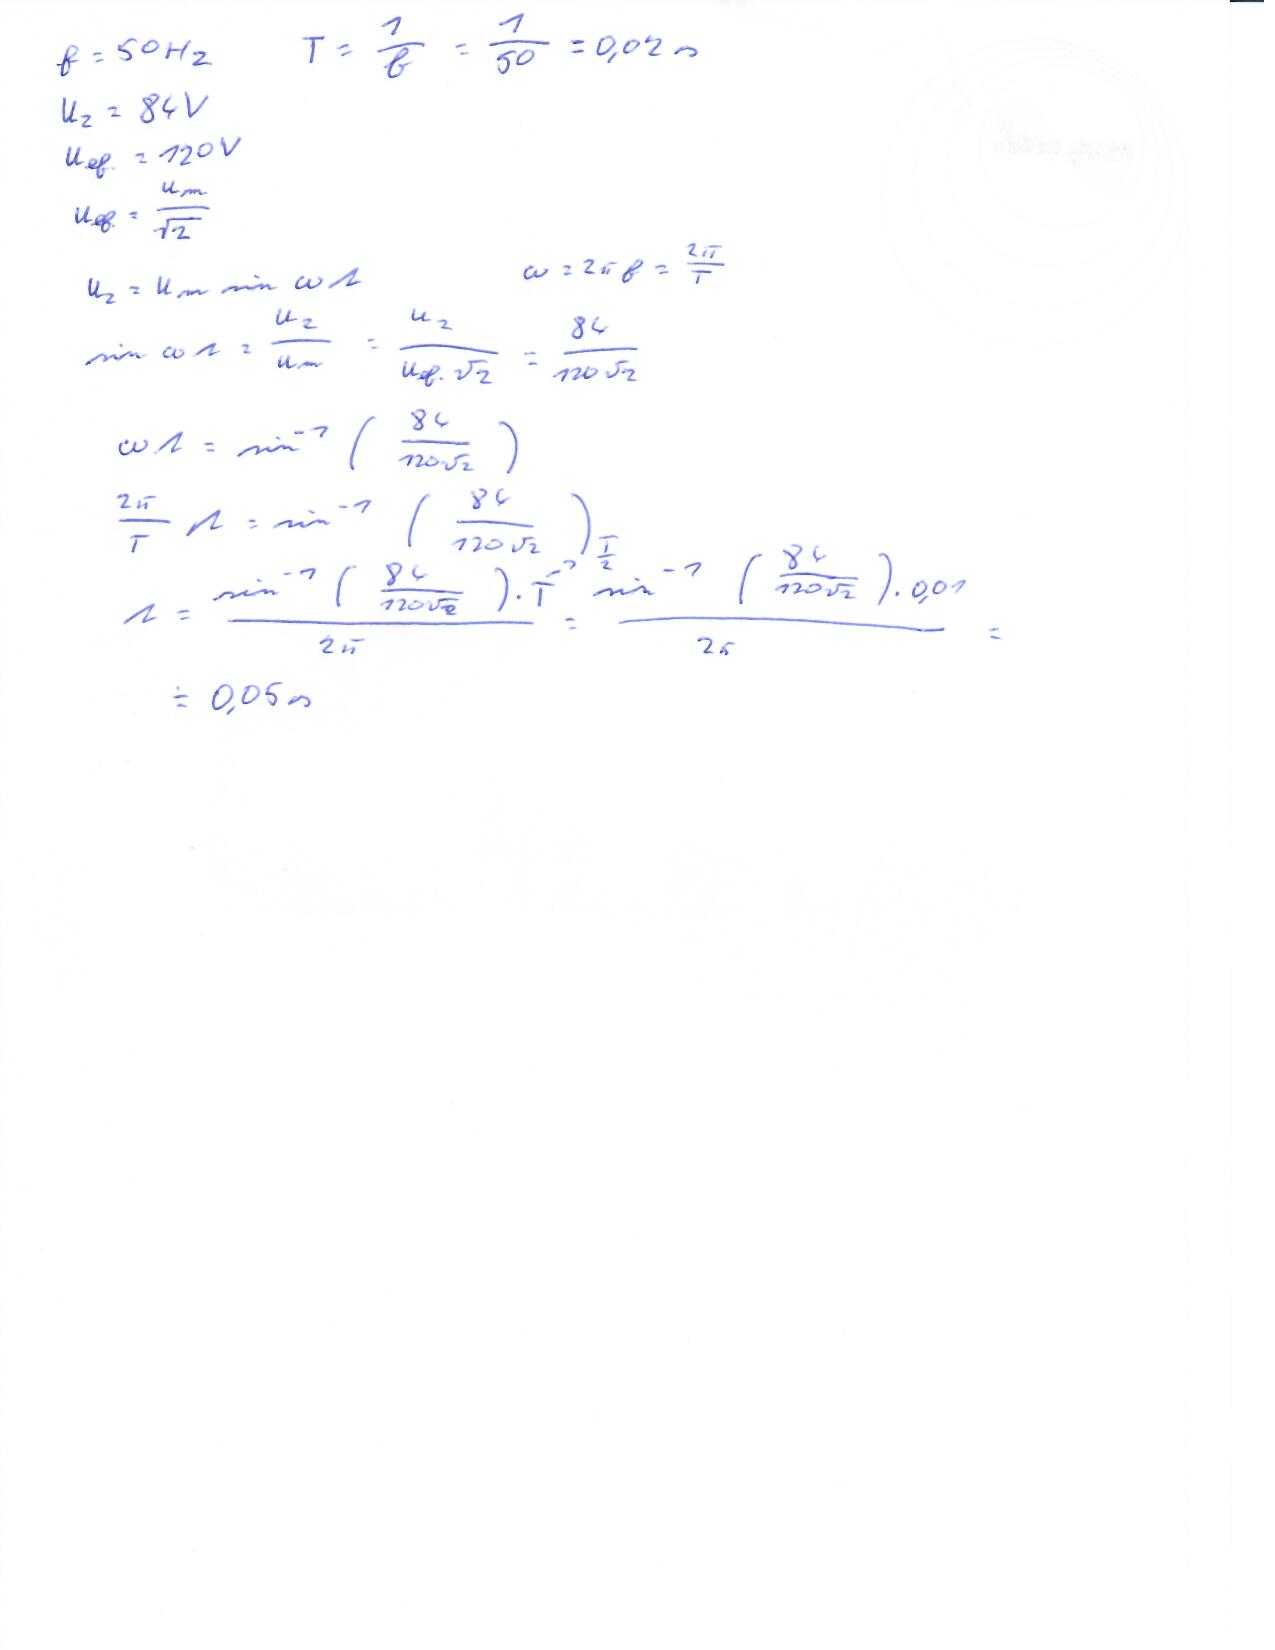 f = 50Hz T = 1/f = 1/50 = 0,02 s
u_z = 84V
u_ef. = 120V
u_ef. = u_m/√2
u_z = u_m sin ωt ω = 2π f = 2π/T
sin ωt = u_z/u_m = u_z/(u_ef. √2) = 84/(120√2)
ωt = sin⁻¹ (84/(120√2))
2π/T t = sin⁻¹ (84/(120√2))
t = (sin⁻¹ (84/(120√2)) · T → T/2)/2π = (sin⁻¹ (84/(120√2)) · 0,01)/2π =
≐ 0,05 s